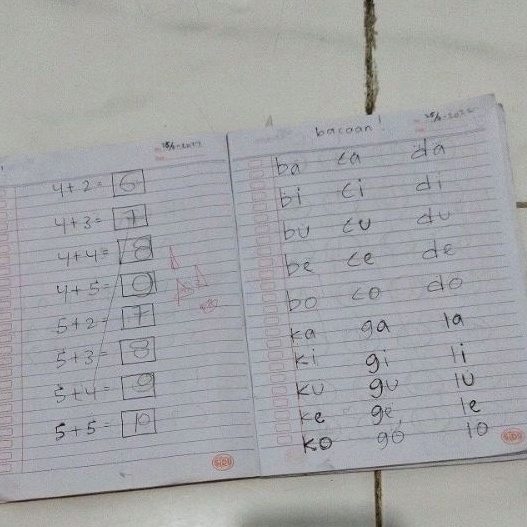 4+2= 6
4+3= 7
4+4= 8
4+5= 9
5+2= 7
5+3= 8
5+4= 9
5+5= 10
bacaan!
ba ca da
bi ci di
bu cu du
be ce de
bo co do
ka ga la
ki gi li
ku gu lu
ke ge le
ko go lo